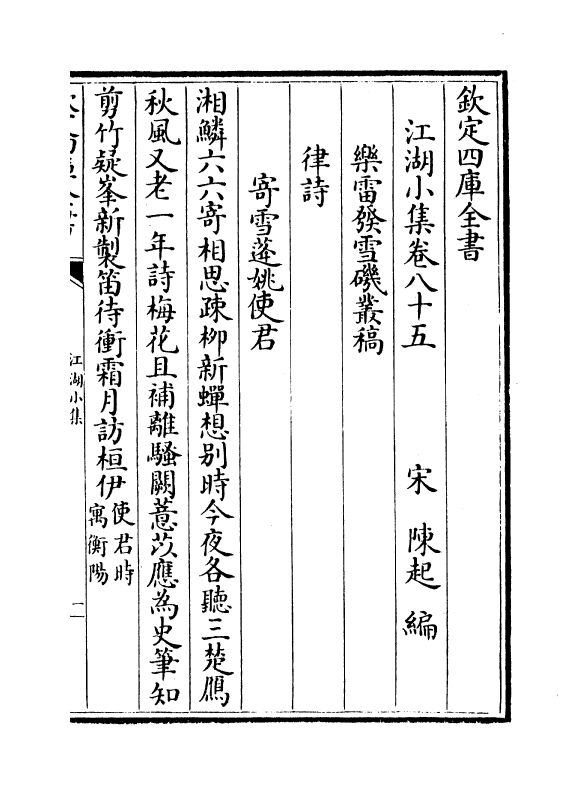 欽定四庫全書
江湖小集卷八十五
宋 陳起 編
樂雷發雪磯叢稿
律詩
寄雪蓬姚使君
湘鱗六六寄相思疎柳新蟬想别時今夜各聽三楚鴈
秋風又老一年詩梅花且補離騷闕薏苡應為史筆知
剪竹疑峯新製笛待衝霜月訪桓伊使君時
寓衡陽
江湖小集
二